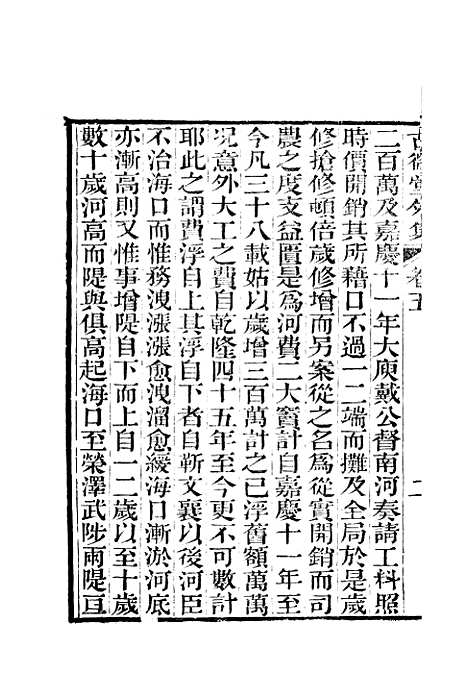 古微堂外集 卷五 二
二百萬及嘉慶十一年大庾戴公督南河奏請工料照
時價開銷其所藉口不過一二端而攤及全局於是歲
修搶修頓倍歲修增而另案從之名爲從實開銷而司
農之度支益匱是爲河費二大竇計自嘉慶十一年至
今凡三十八載姑以歲增三百萬計之已浮舊額萬萬
況意外大工之費自乾隆四十五年至今更不可數計
耶此之謂費浮自上其浮自下者自靳文襄以後河臣
不治海口而惟務洩漲漲愈洩溜愈緩海口漸淤河底
亦漸高則又惟事增隄自下而上自一二歲以至十歲
數十歲河高而隄與俱高起海口至滎澤武陟兩隄亙